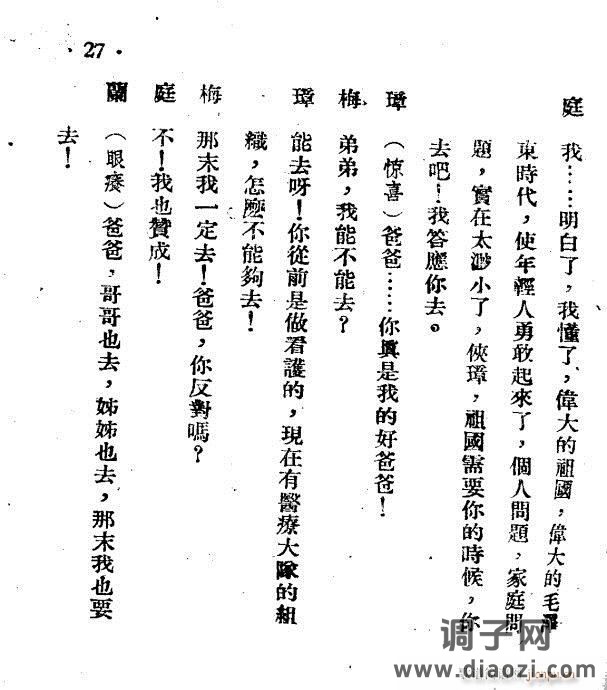 ·27·
庭 我……明白了，我懂了，偉大的祖國，偉大的毛澤
東時代，使年輕人勇敢起來了，個人問題，家庭問
題，實在太渺小了，俠璋，祖國需要你的時候，你
去吧！我答應你去。
璋 （惊喜）爸爸……你眞是我的好爸爸！
梅 弟弟，我能不能去？
璋 能去呀！你從前是做看護的，現在有醫療大隊的組
織，怎麼不能夠去！
梅 那末我一定去！爸爸，你反對嗎？
庭 不！我也贊成！
蘭 （眼癢）爸爸，哥哥也去，姊姊也去，那末我也要
去！
调子网
www.diaozi.com